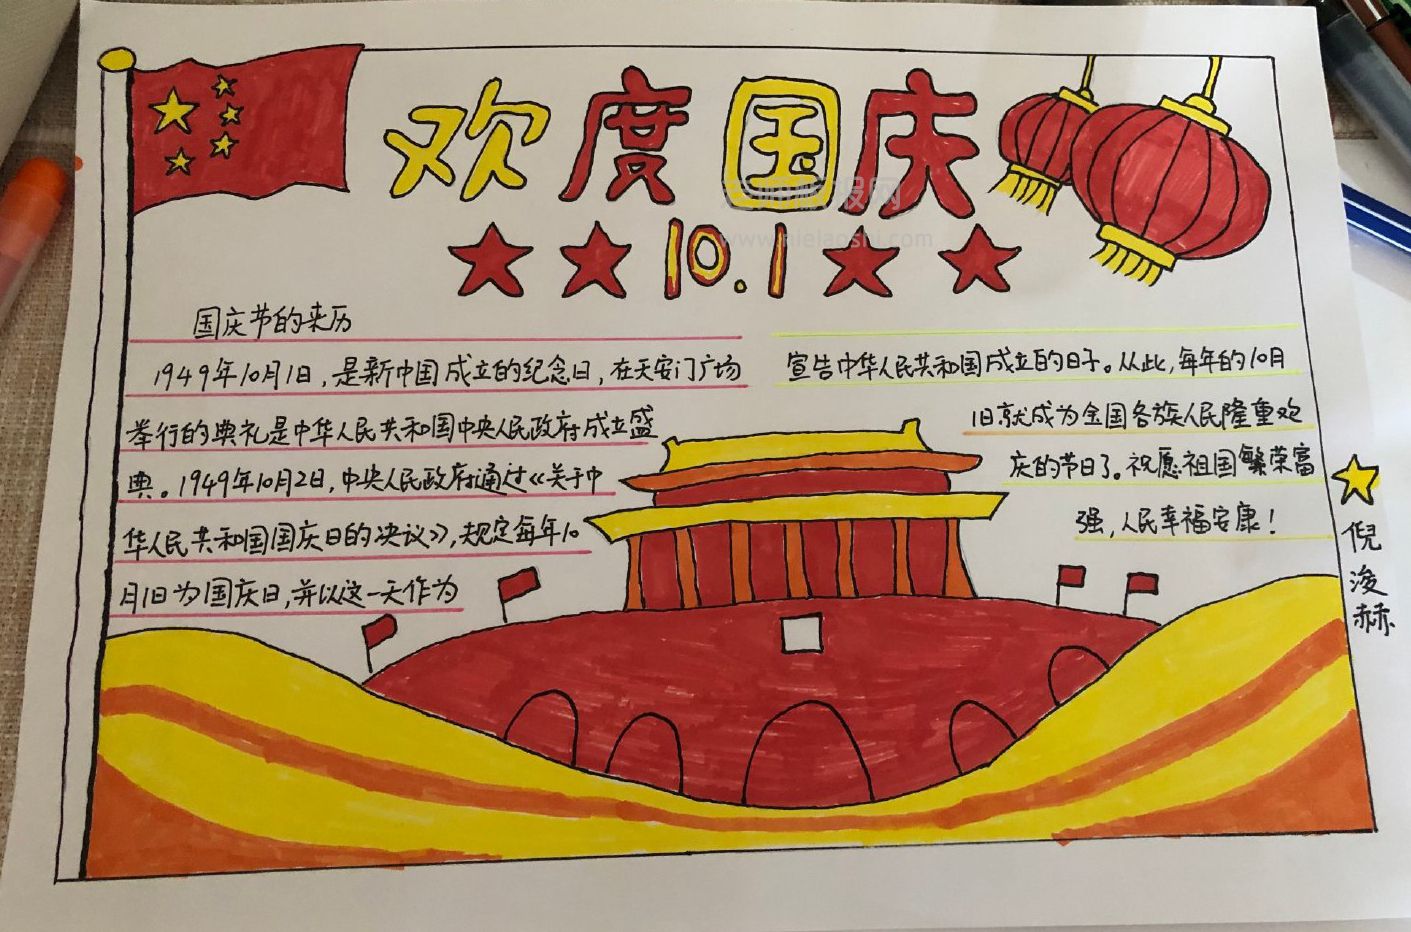 欢度国庆
10.1
国庆节的来历
1949年10月1日，是新中国成立的纪念日，在天安门广场
举行的典礼是中华人民共和国中央人民政府成立盛
典。1949年10月2日，中央人民政府通过《关于中
华人民共和国国庆日的决议》，规定每年10
月1日为国庆日，并以这一天作为
宣告中华人民共和国成立的日子。从此，每年的10月
1日就成为全国各族人民隆重欢
庆的节日了。祝愿祖国繁荣富
强，人民幸福安康！
倪浚赫
老师板报网